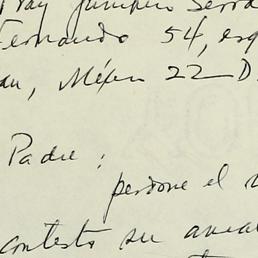 Fray Junípero Serra
Fernando 54, esq
an, Méjico 22 D.
Padre:
perdone el
contesto su